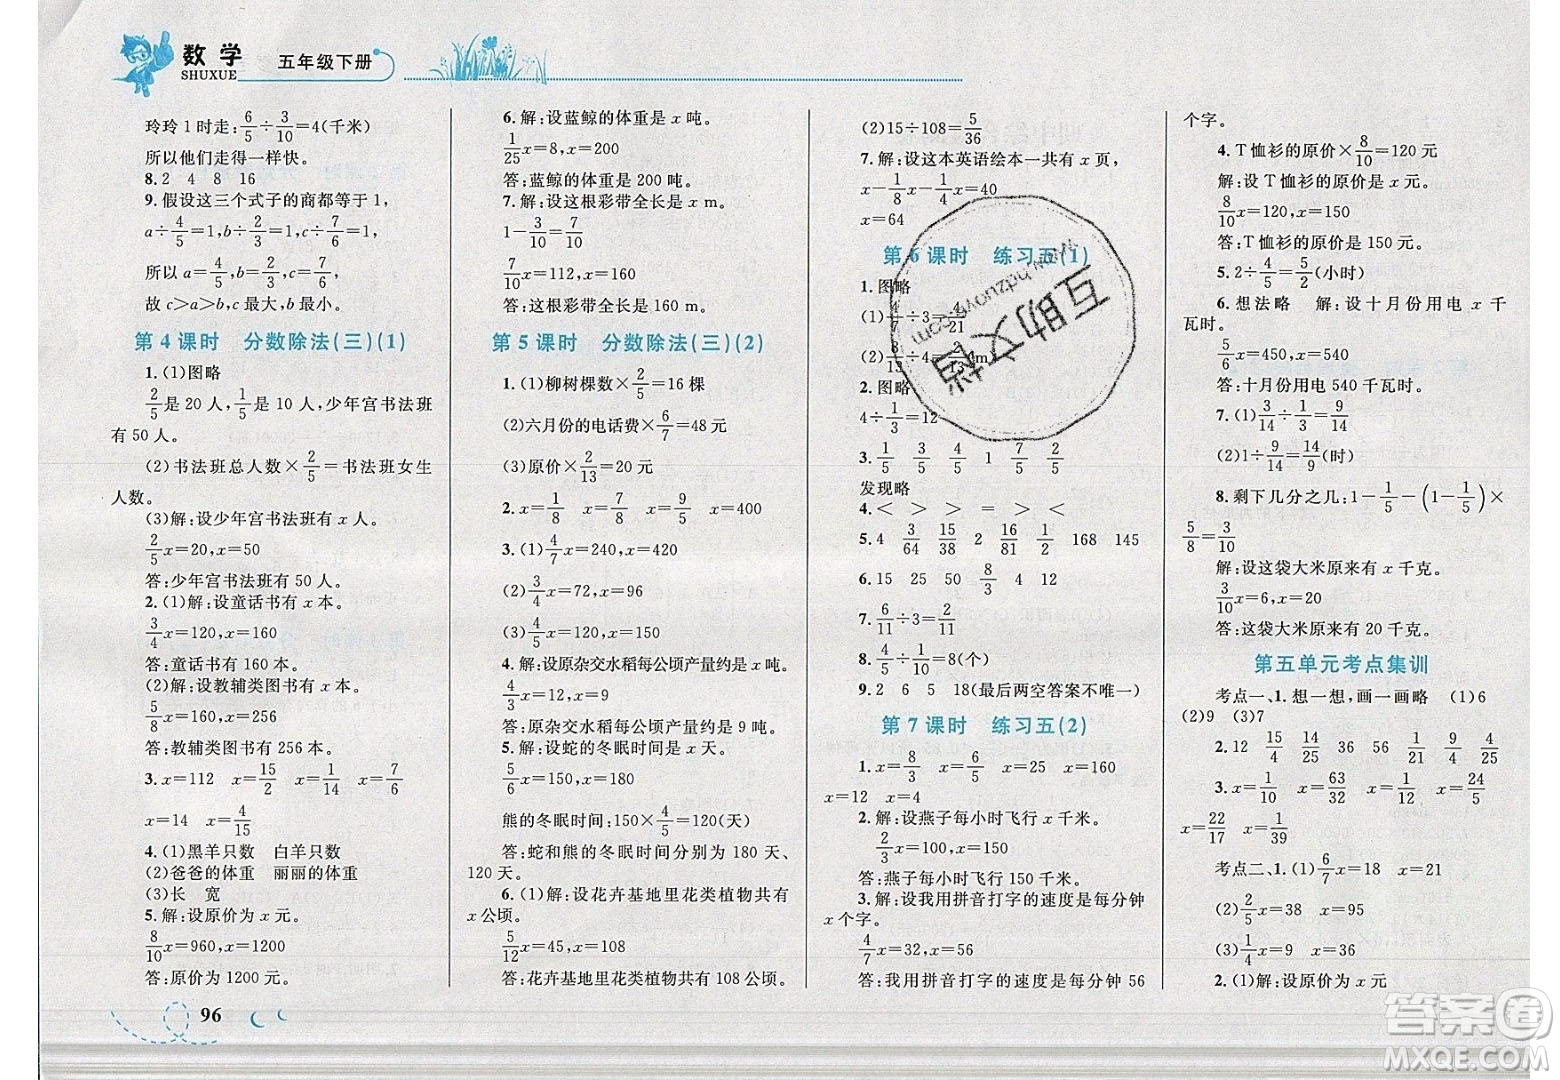 数学
SHUXUE
五年级下册
玲玲 1 时走:6/5÷3/10=4(千米)
所以他们走得一样快。
8. 2 4 8 16
9. 假设这三个式子的商都等于 1,
a÷4/5=1,b÷2/3=1,c÷7/6=1,
所以 a=4/5,b=2/3,c=7/6,
故 c>a>b,c 最大,b 最小。
第 4 课时 分数除法(三)(1)
1. (1)图略
2/5是 20 人,1/5是 10 人,少年宫书法班
有 50 人。
(2)书法班总人数×2/5=书法班女生
人数。
(3)解:设少年宫书法班有 x 人。
2/5x=20,x=50
答:少年宫书法班有 50 人。
2. (1)解:设童话书有 x 本。
3/4x=120,x=160
答:童话书有 160 本。
(2)解:设教辅类图书有 x 本。
5/8x=160,x=256
答:教辅类图书有 256 本。
3. x=112 x=15/2 x=1/14 x=7/6
x=14 x=4/15
4. (1)黑羊只数 白羊只数
(2)爸爸的体重 丽丽的体重
(3)长 宽
5. 解:设原价为 x 元。
8/10x=960,x=1200
答:原价为 1200 元。
96
6. 解:设蓝鲸的体重是 x 吨。
1/25x=8,x=200
答:蓝鲸的体重是 200 吨。
7. 解:设这根彩带全长是 x m。
1-3/10=7/10
7/10x=112,x=160
答:这根彩带全长是 160 m。
第 5 课时 分数除法(三)(2)
1. (1)柳树棵数×2/5=16 棵
(2)六月份的电话费×6/7=48 元
(3)原价×2/13=20 元
2. x=1/8 x=7/5 x=9/5 x=400
3. (1)4/7x=240,x=420
(2)3/4x=72,x=96
(3)4/5x=120,x=150
4. 解:设原杂交水稻每公顷产量约是 x 吨。
4/3x=12,x=9
答:原杂交水稻每公顷产量约是 9 吨。
5. 解:设蛇的冬眠时间是 x 天。
5/6x=150,x=180
熊的冬眠时间:150×4/5=120(天)
答:蛇和熊的冬眠时间分别为 180 天、
120 天。
6. (1)解:设花卉基地里花类植物共有
x 公顷。
5/12x=45,x=108
答:花卉基地里花类植物共有 108 公顷。
(2)15÷108=5/36
7. 解:设这本英语绘本一共有 x 页,
x-1/8x-1/4x=40
x=64
第 6 课时 练习五(1)
1. 图略
(1)4/7÷3=4/21
(2)8/13÷4=
2. 图略
4÷1/3=12
3. 1/5 4/5 4/5 1 1/5 4/5
发现略
4. < > > = > <
5. 4 3/64 15/38 2 16/81 1/2 168 145
6. 15 25 50 8/3 4 12
7. 6/11÷3=2/11
8. 4/5÷1/10=8(个)
9. 2 6 5 18(最后两空答案不唯一)
第 7 课时 练习五(2)
1. x=8/3 x=6/5 x=25 x=160
x=12 x=4
2. 解:设燕子每小时飞行 x 千米。
2/3x=100,x=150
答:燕子每小时飞行 150 千米。
3. 解:设我用拼音打字的速度是每分钟
x 个字。
4/7x=32,x=56
答:我用拼音打字的速度是每分钟 56
个字。
4. T 恤衫的原价×8/10=120 元
解:设 T 恤衫的原价是 x 元。
8/10x=120,x=150
答:T 恤衫的原价是 150 元。
5. 2÷4/5=5/2(小时)
6. 想法略 解:设十月份用电 x 千
瓦时。
5/6x=450,x=540
答:十月份用电 540 千瓦时。
7. (1)3/14÷1/3=9/14
(2)1÷9/14=14/9(时)
8. 剩下几分之几:1-1/5-(1-1/5)×
5/8=3/10
解:设这袋大米原来有 x 千克。
3/10x=6,x=20
答:这袋大米原来有 20 千克。
第五单元考点集训
考点一、1. 想一想,画一画略 (1)6
(2)9 (3)7
2. 12 15/4 15/14 36 56 1/21 9/4 4/25
3. x=1/10 x=63/32 x=1/4 x=24/5
x=22/17 x=1/39
考点二、1. (1)6/7x=18 x=21
(2)2/5x=38 x=95
(3)1/4x=9 x=36
2. (1)解:设原价为 x 元
互助文档
答案圈
MXQE.COM